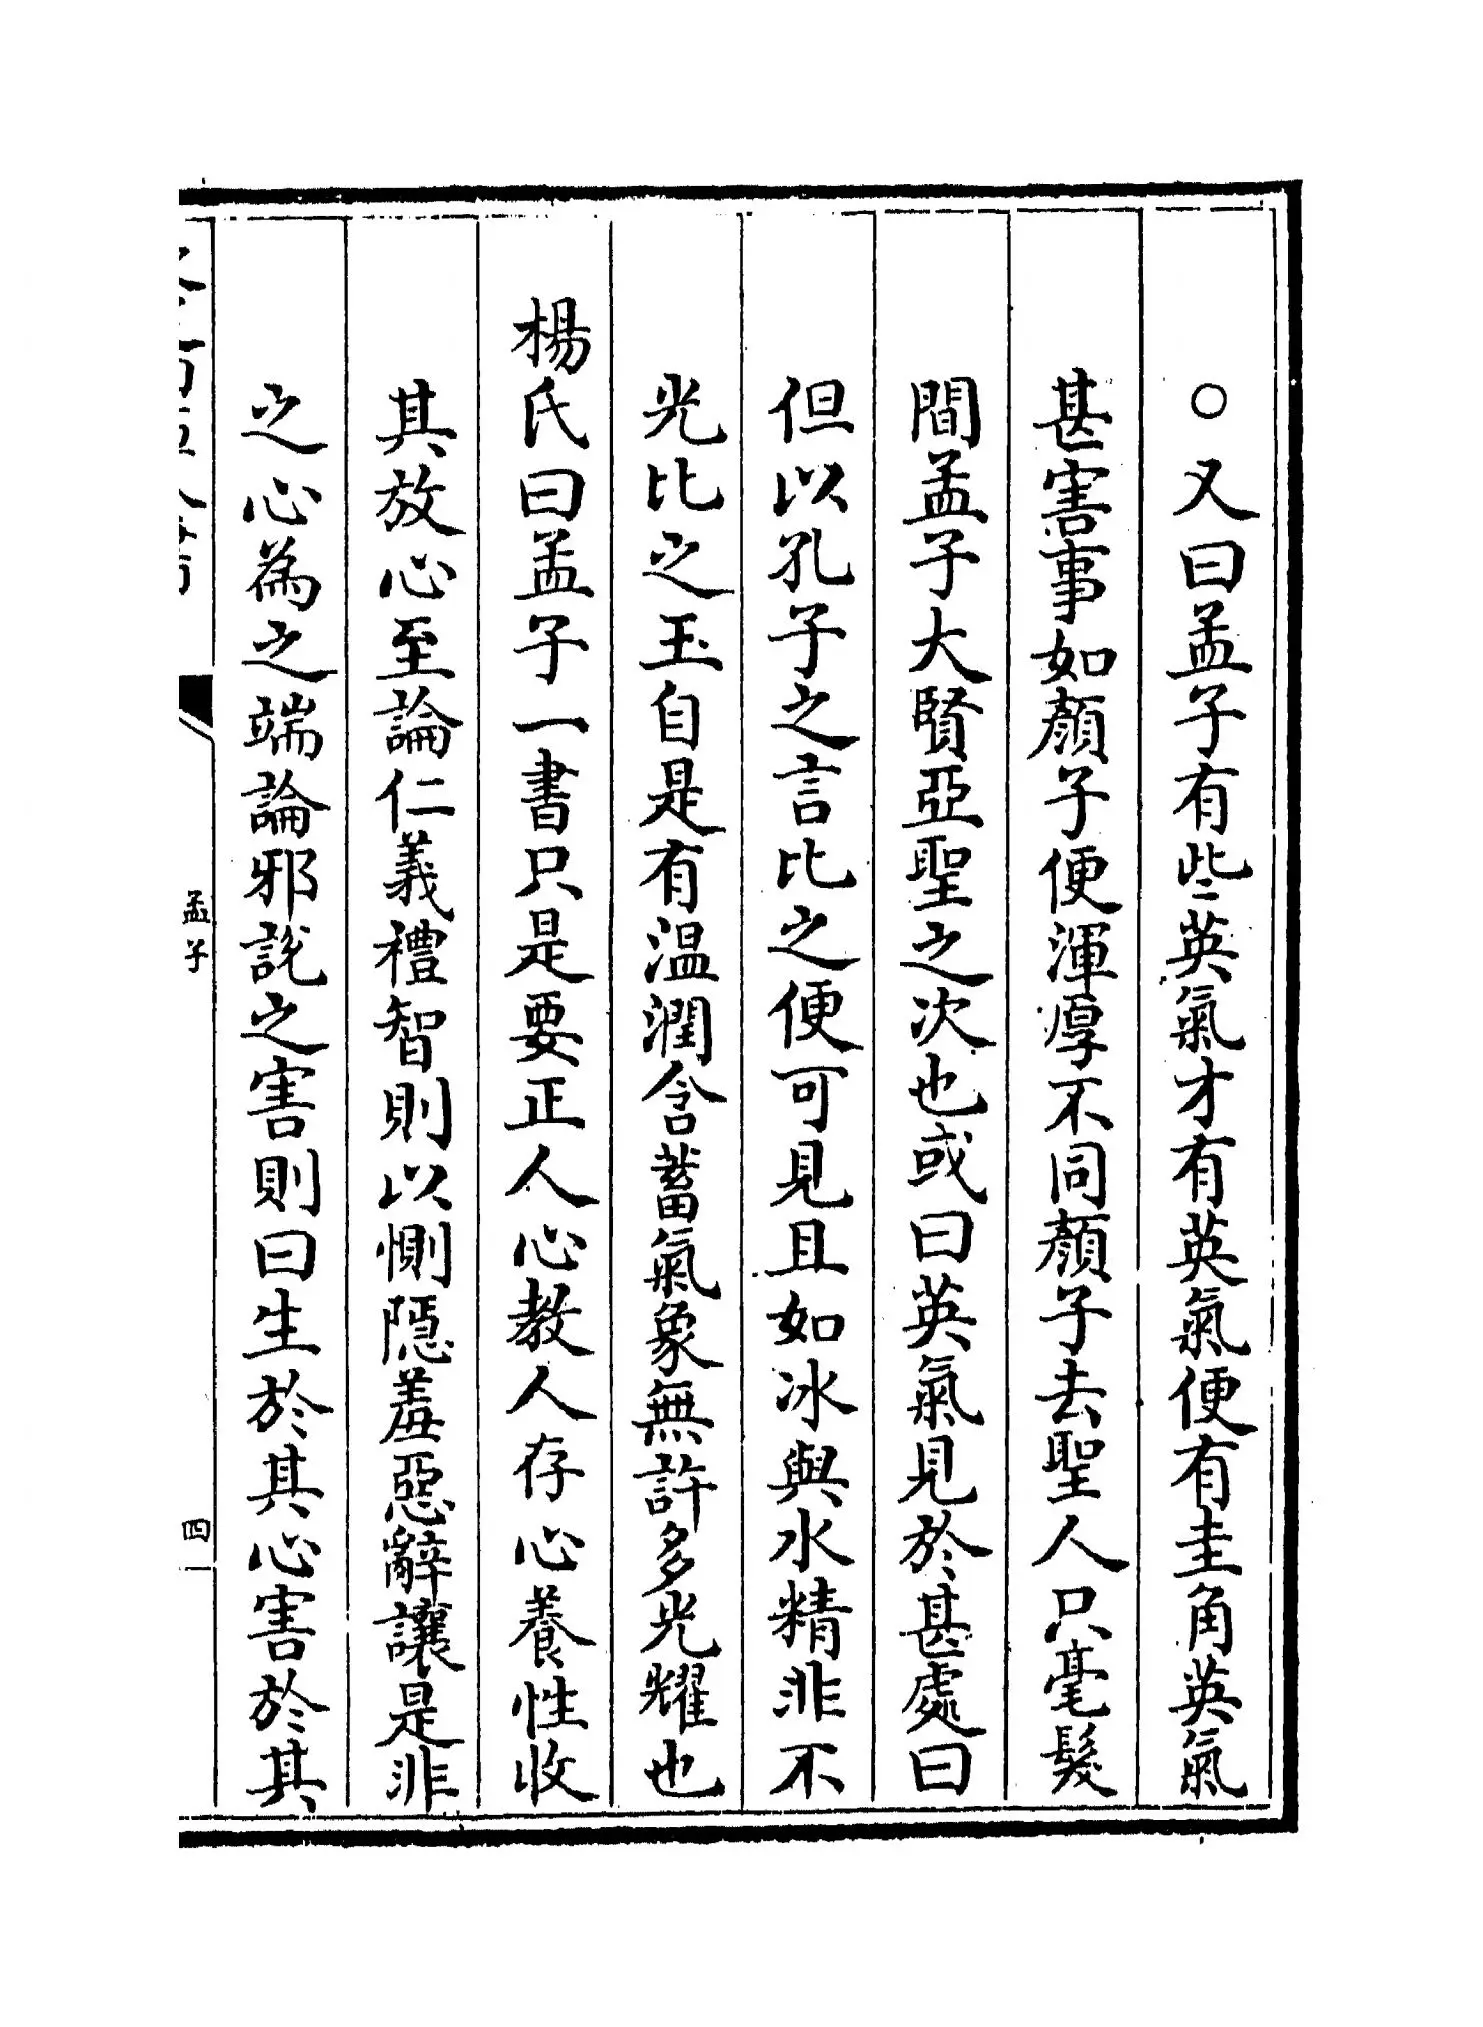 ○又曰孟子有些英氣才有英氣便有圭角英氣
甚害事如顏子便渾厚不同顏子去聖人只毫髮
間孟子大賢亞聖之次也或曰英氣見於甚處曰
但以孔子之言比之便可見且如冰與水精非不
光比之玉自是有温潤含蓄氣象無許多光耀也
楊氏曰孟子一書只是要正人心教人存心養性收
其放心至論仁義禮智則以惻隱羞惡辭讓是非
之心為之端論邪説之害則曰生於其心害於其
孟子
四